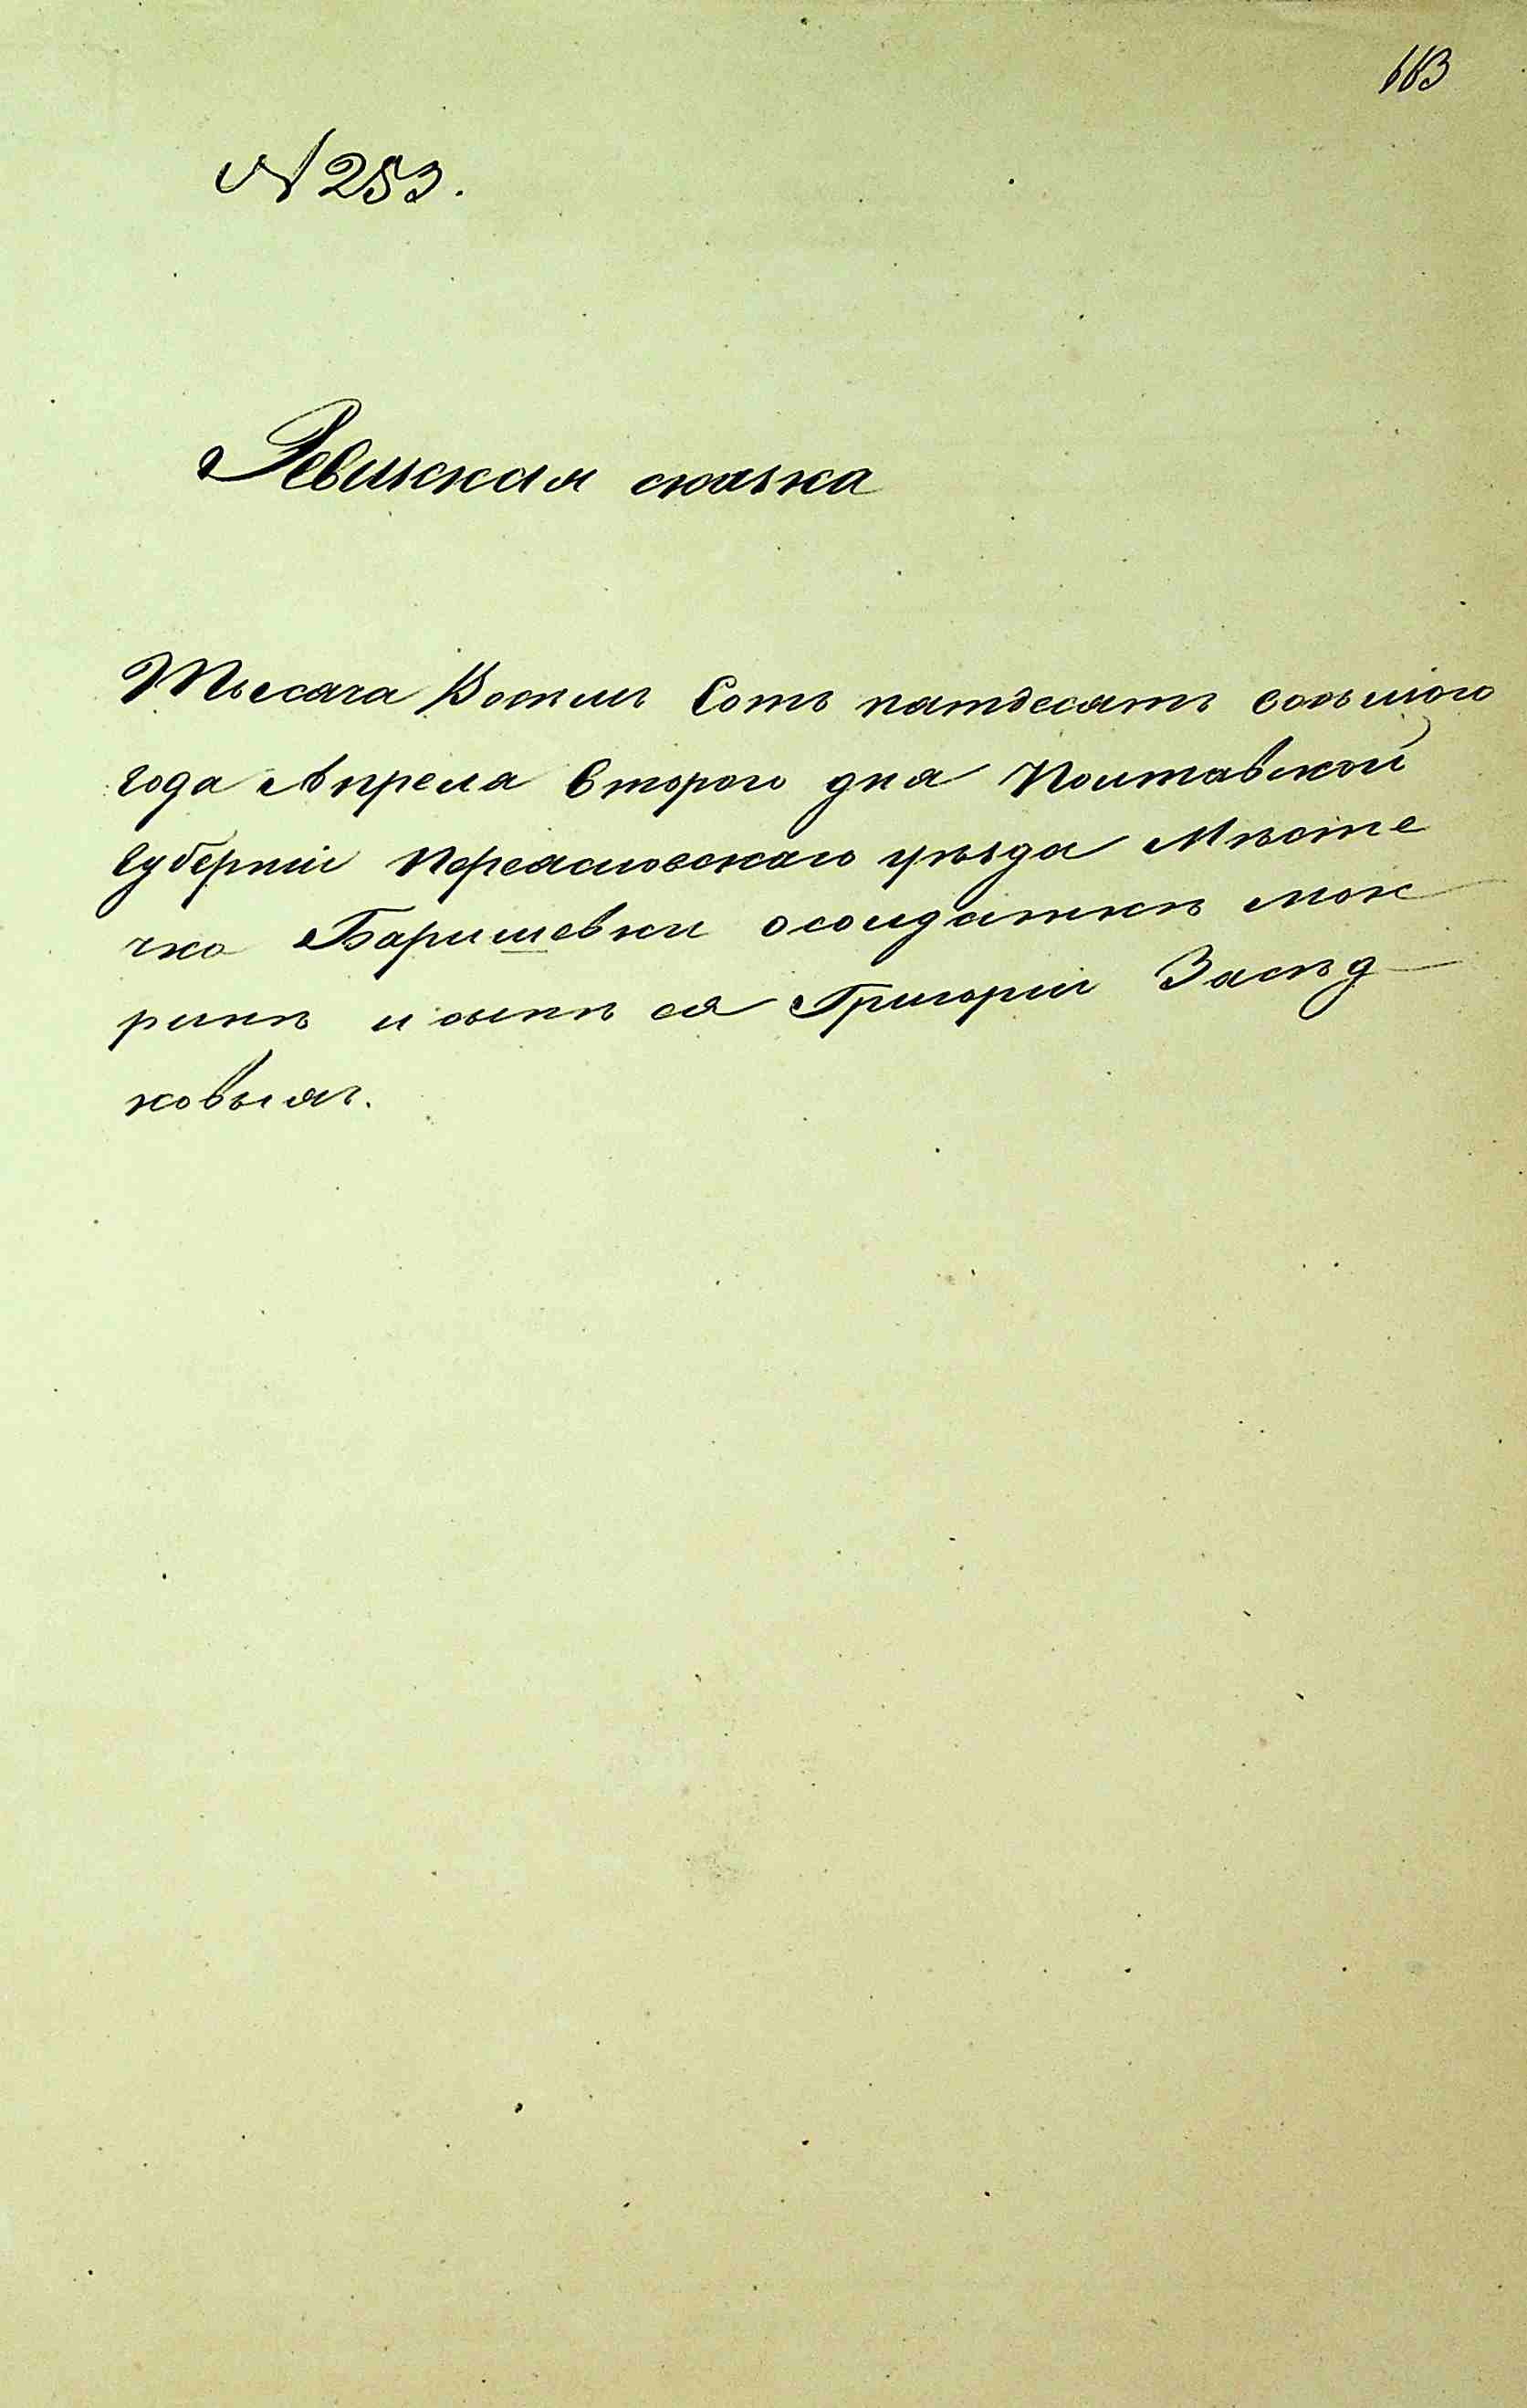 663
№ 253.
Ревизская сказка
Тысяча Восемь Сотъ патдесятъ седьмого
года Апреля Второго дня Полтавской
Губерніи Переясловскаго уѣзда Мѣсте
чка Баришевки осолдаткѣ мок
ринѣ и сынѣ ея Григоріи Засѣд
ковыхъ.